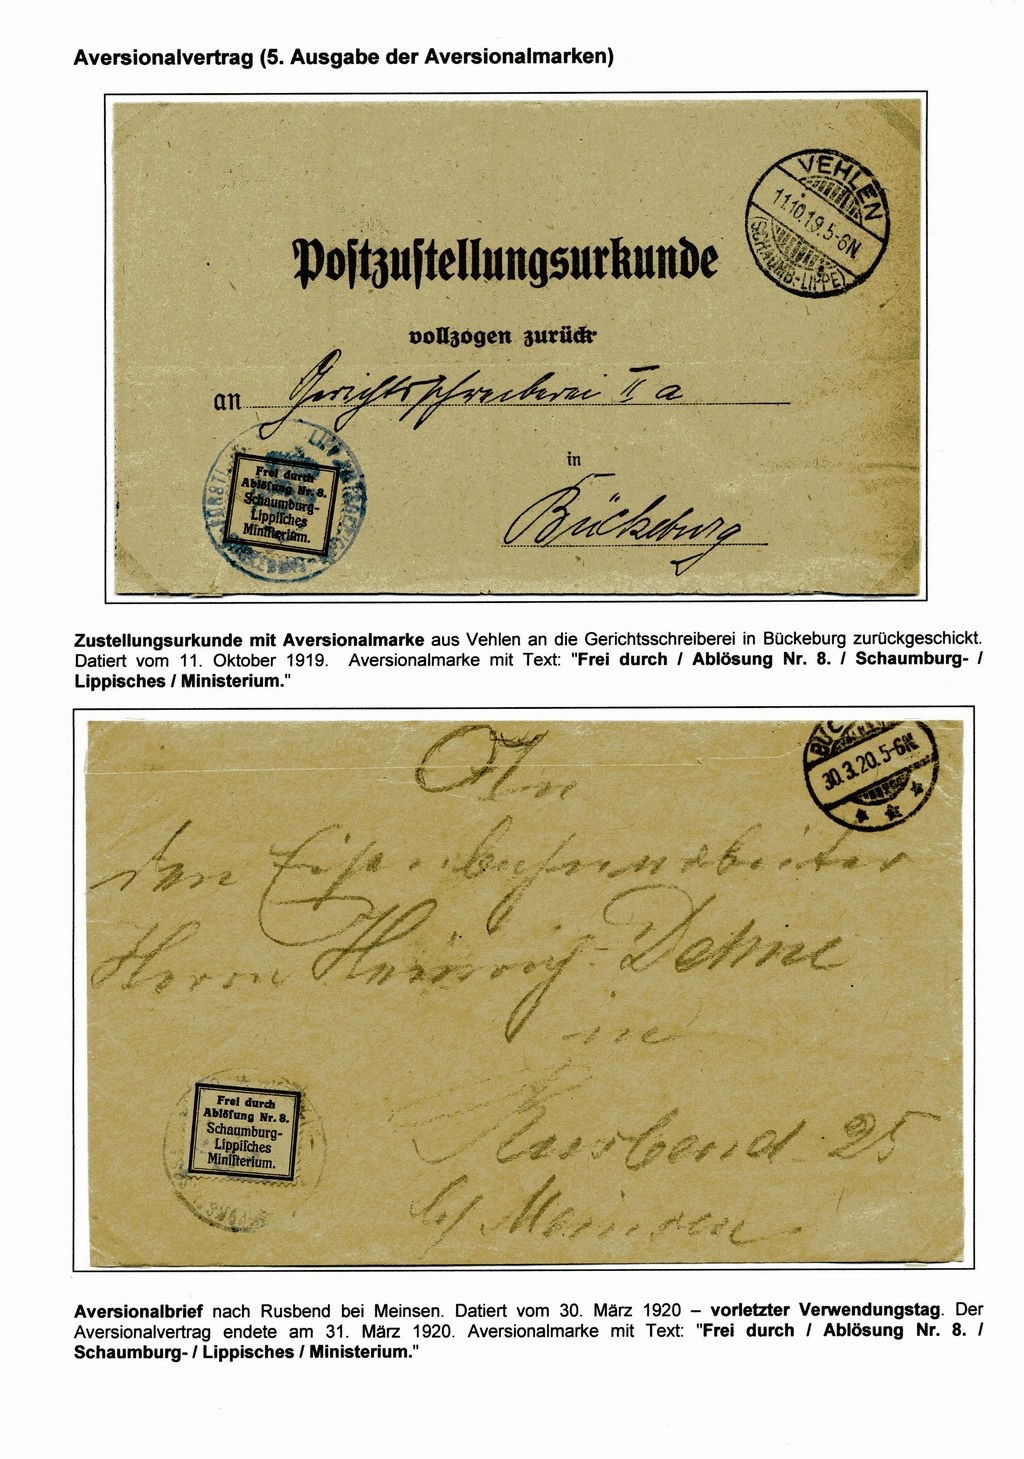 Aversionalvertrag (5. Ausgabe der Aversionalmarken)
VEHLEN
11.10.19.5-6N.
(SCHAUMB.-LIPPE)
Postzustellungsurkunde
vollzogen zurück
an Gerichtsschreiberei II a
in
Bückeburg
Frei durch
Ablösung Nr. 8.
Schaumburg-
Lippisches
Ministerium.
Zustellungsurkunde mit Aversionalmarke aus Vehlen an die Gerichtsschreiberei in Bückeburg zurückgeschickt.
Datiert vom 11. Oktober 1919. Aversionalmarke mit Text: "Frei durch / Ablösung Nr. 8. / Schaumburg- /
Lippisches / Ministerium."
30.3.20.5-6N.
An
den Eisenbahnarbeiter
Herrn Heinrich Dehne
in
Rusbend 25
b/ Meinsen
Frei durch
Ablösung Nr. 8.
Schaumburg-
Lippisches
Ministerium.
Aversionalbrief nach Rusbend bei Meinsen. Datiert vom 30. März 1920 – vorletzter Verwendungstag. Der
Aversionalvertrag endete am 31. März 1920. Aversionalmarke mit Text: "Frei durch / Ablösung Nr. 8. /
Schaumburg- / Lippisches / Ministerium."